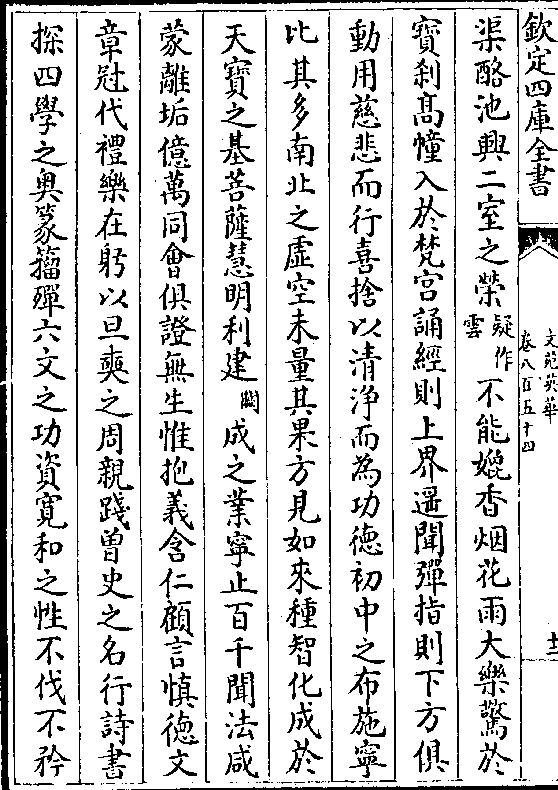 欽定四庫全書
文苑英華
卷八百五十四
十三
渠酪池興二室之榮疑作雲不能媲香烟花雨大樂驚於
寶刹髙幢入於梵宫誦經則上界遥聞彈指則下方俱
動用慈悲而行喜捨以清浄而為功徳初中之布施寧
比其多南北之虛空未量其果方見如來種智化成於
天寶之基菩薩慧明利建闕成之業寧止百千聞法咸
蒙離垢億萬同會俱證無生惟抱義含仁顧言慎徳文
章冠代禮樂在躬以旦奭之周親踐曽史之名行詩書
探四學之奥篆籀殫六文之功資寛和之性不伐不矜